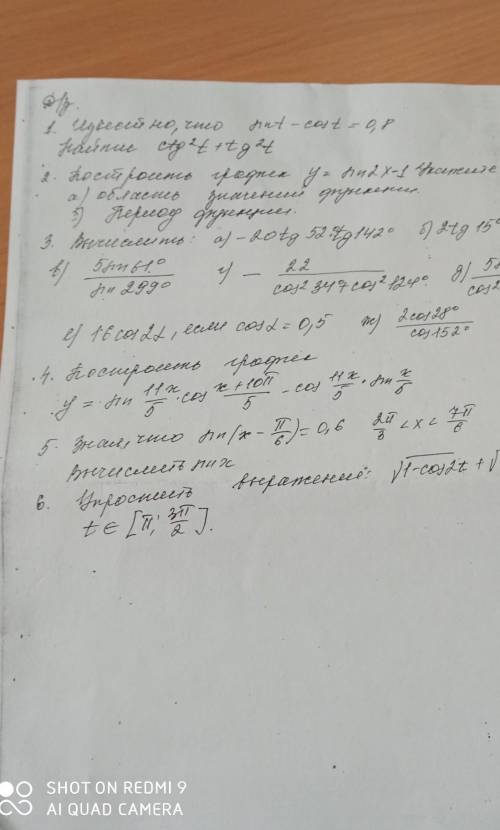 Д/з.
1. Известно, что sint - cost = 0,8
Найти ctg²t + tg²t
2. Построить график y = sin2x-1 Укажите
а) область значений функции.
б) Период функции.
3. Вычислить: а) -20tg 52°tg142° б) 2tg 15°
в) 5sin61°/sin299° г) - 22/cos²347cos²124° д) cos²
е) 16cos2α, если cosα = 0,5 ж) 2cos28°/cos152°
4. Построить график
y = sin 11x/5 · cos x+10π/5 - cos 11x/5 · sin x/5
5. Зная, что sin(x - π/6) = 0,6 2π/3 < x < 7π/6
Вычислить sinx
6. Упростить выражение: √1-cos2t + √
t ∈ [π; 3π/2].
SHOT ON REDMI 9
AI QUAD CAMERA